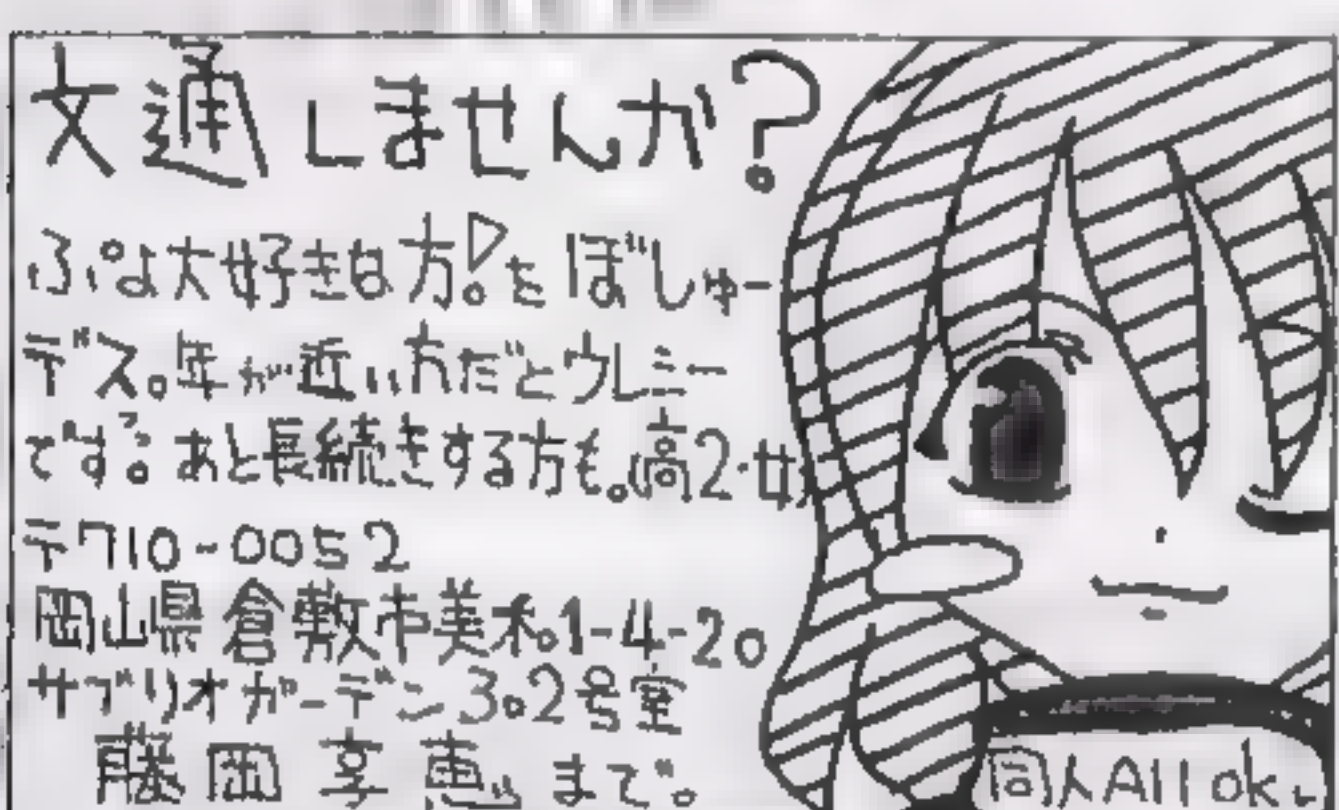 文通しませんか?
ぷよ大好きな方!をぼしゅー
デス。年が近い方だとウレシー
です。あと長続きする方も。(高2・女)
〒710-0052
岡山県倉敷市美和1-4-20
サブリオガーデン302号室
藤岡享恵まで。
同人All ok